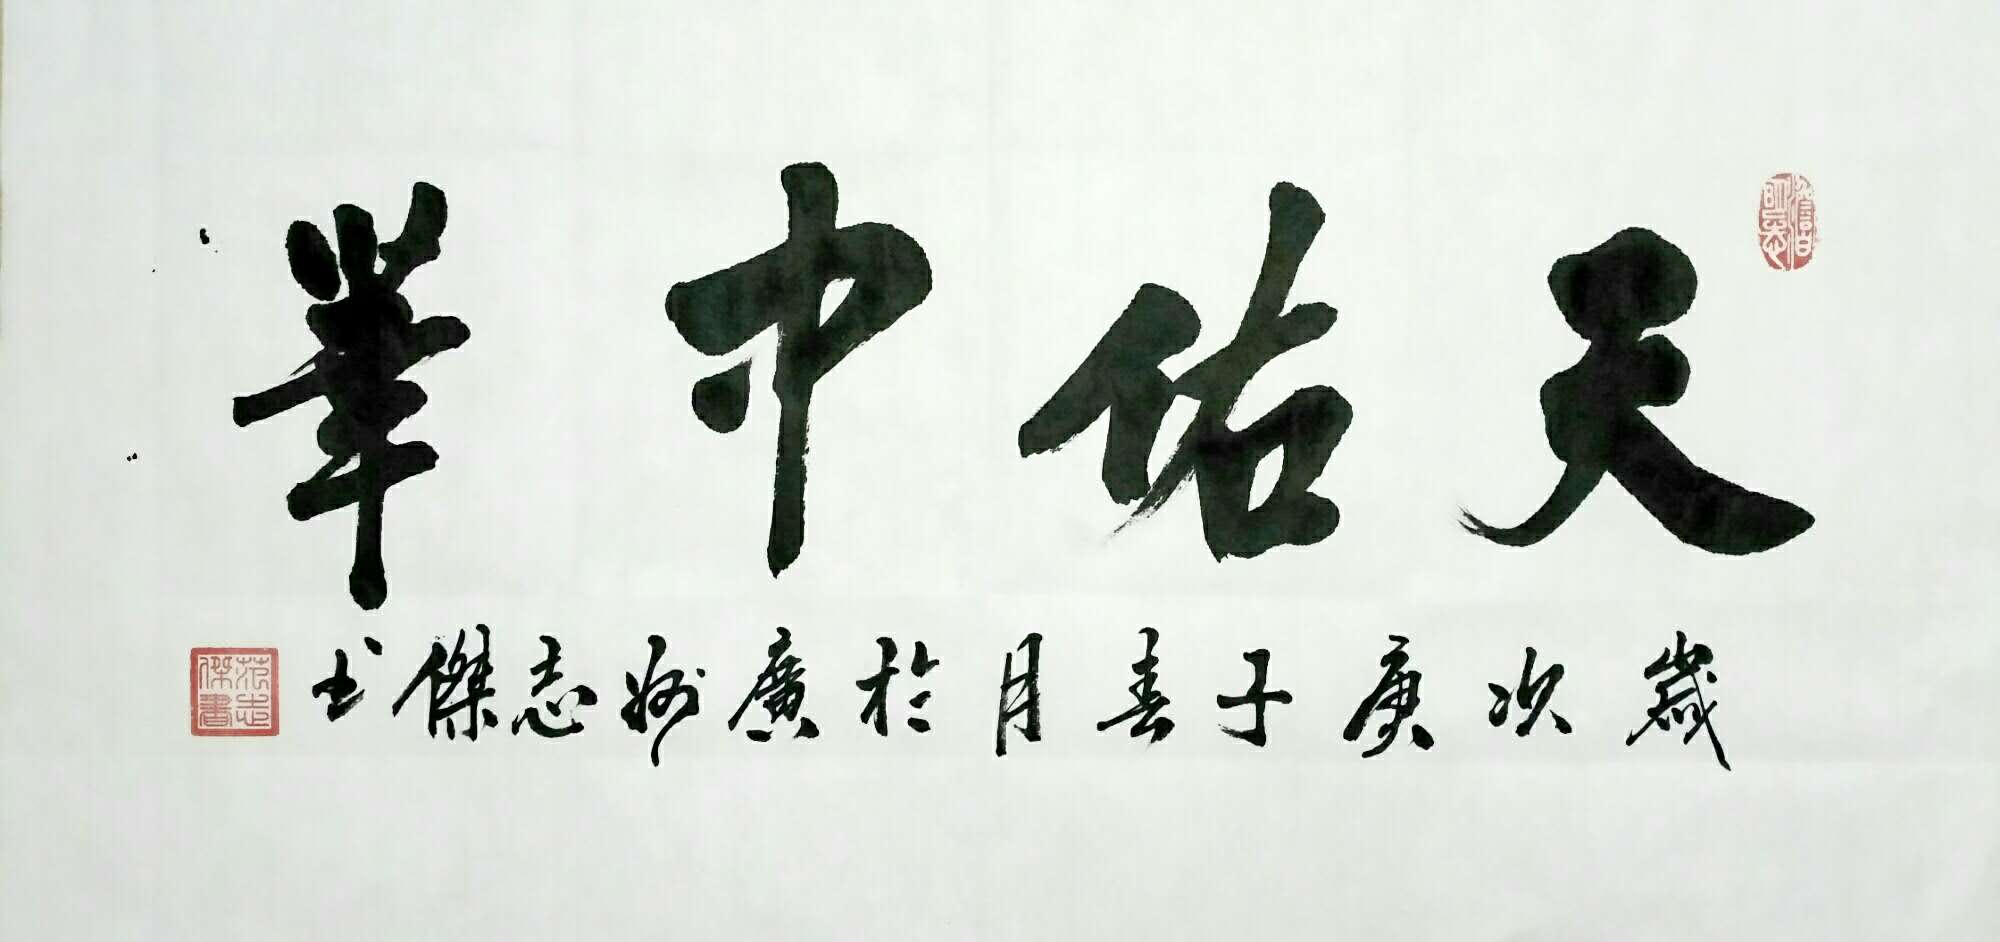 天佑中華
歲次庚子春月於廣州志傑书
范志傑書